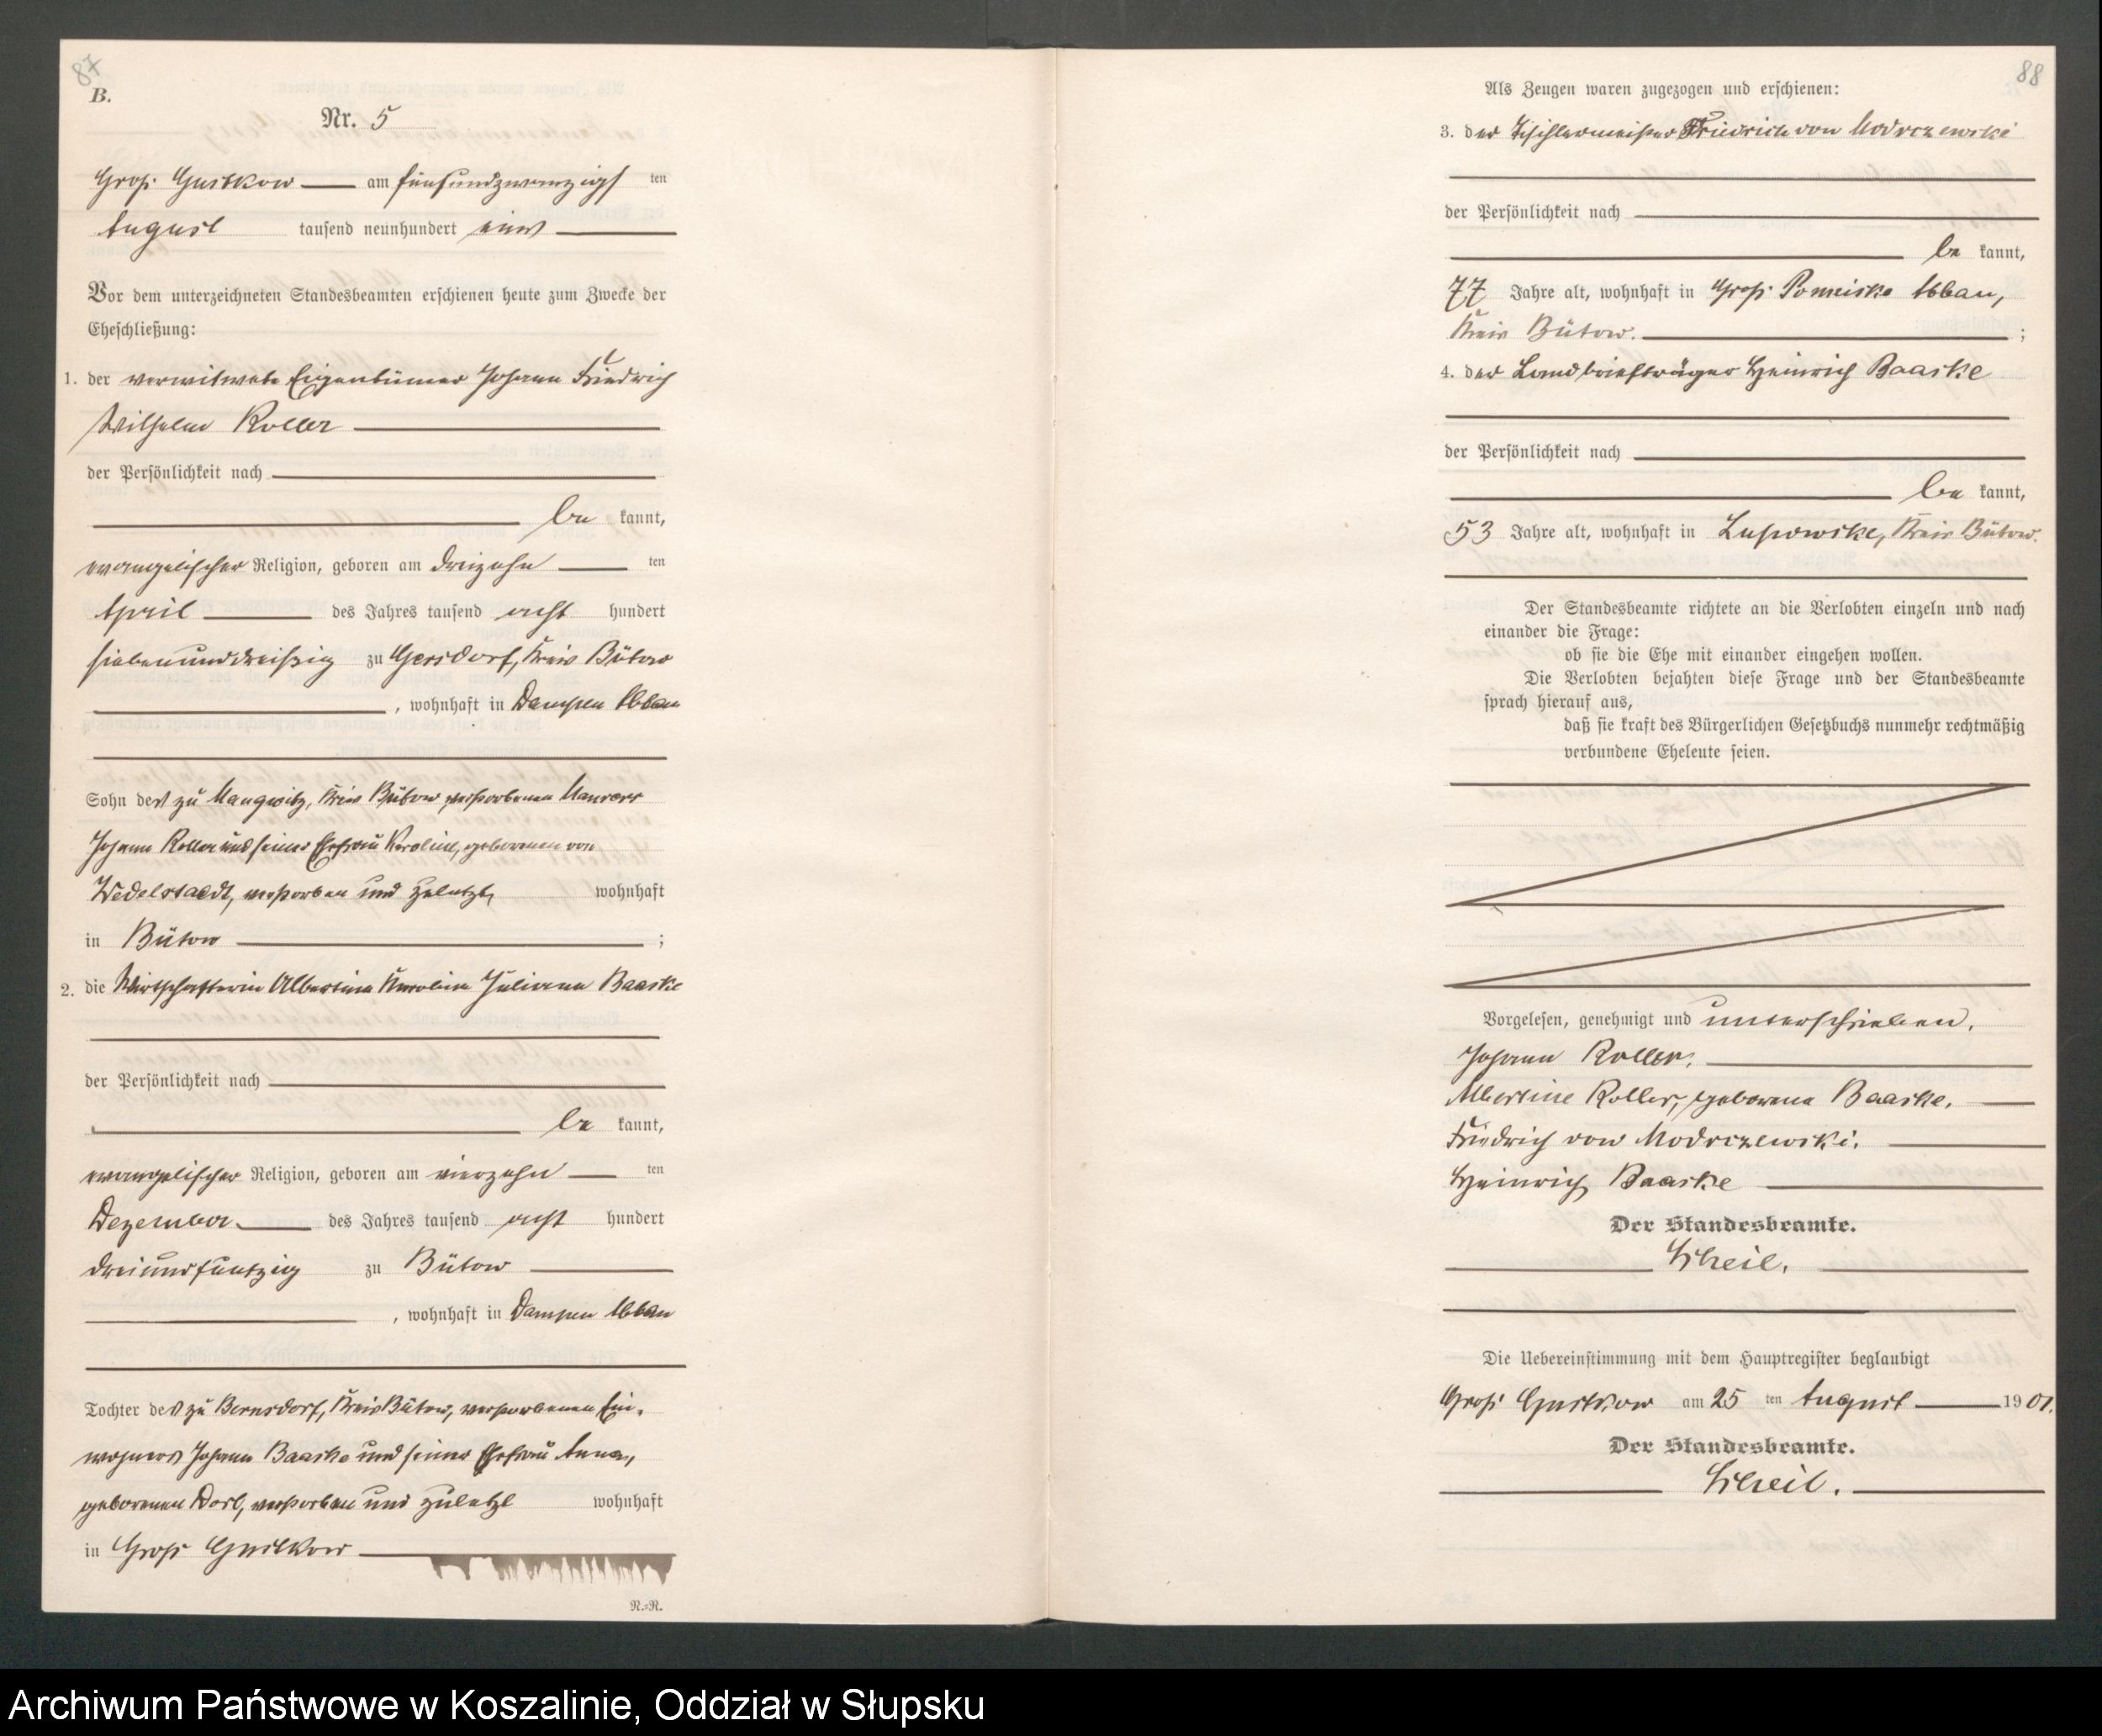 87
B.
Nr. 5
Groß Gustkow am fünfundzwanzigs ten
August tausend neunhundert eins
Vor dem unterzeichneten Standesbeamten erschienen heute zum Zwecke der
Eheschließung:
1. der verwitwete Eigentümer Johann Friedrich
Wilhelm Roller
der Persönlichkeit nach
be kannt,
evangelischer Religion, geboren am dreizehn ten
April des Jahres tausend acht hundert
siebenunddreißig zu Gersdorf, Kreis Bütow
, wohnhaft in Dampen Abbau
Sohn des zu Mangwitz, Kreis Bütow verstorbenen Maurers
Johann Roller und seiner Ehefrau Karoline, geborenen von
Wedelstaedt, verstorben und zuletzt wohnhaft
in Bütow ;
2. die Wirtschafterin Albertine Karoline Juliane Baaske
der Persönlichkeit nach
be kannt,
evangelischer Religion, geboren am vierzehn ten
Dezember des Jahres tausend acht hundert
dreiundfünfzig zu Bütow
, wohnhaft in Dampen Abbau
Tochter des zu Bernsdorf, Kreis Bütow, verstorbenen Ein-
wohners Johann Baaske und seiner Ehefrau Anna,
geborenen Dorl, verstorben und zuletzt wohnhaft
in Groß Gustkow
R.-R.
88
Als Zeugen waren zugezogen und erschienen:
3. der Tischlermeister Friedrich von Modrczewski
der Persönlichkeit nach
be kannt,
77 Jahre alt, wohnhaft in Groß Pomeiske Abbau,
Kreis Bütow. ;
4. der Landbriefträger Heinrich Baaske
der Persönlichkeit nach
be kannt,
53 Jahre alt, wohnhaft in Lupowske, Kreis Bütow.
Der Standesbeamte richtete an die Verlobten einzeln und nach
einander die Frage:
ob sie die Ehe mit einander eingehen wollen.
Die Verlobten bejahten diese Frage und der Standesbeamte
sprach hierauf aus,
daß sie kraft des Bürgerlichen Gesetzbuchs nunmehr rechtmäßig
verbundene Eheleute seien.
Vorgelesen, genehmigt und unterschrieben.
Johann Roller.
Albertine Roller, geborene Baaske.
Friedrich von Modrczewski.
Heinrich Baaske
Der Standesbeamte.
Scheil.
Die Uebereinstimmung mit dem Hauptregister beglaubigt
Groß Gustkow am 25 ten August 1901.
Der Standesbeamte.
Scheil.
Archiwum Państwowe w Koszalinie, Oddział w Słupsku